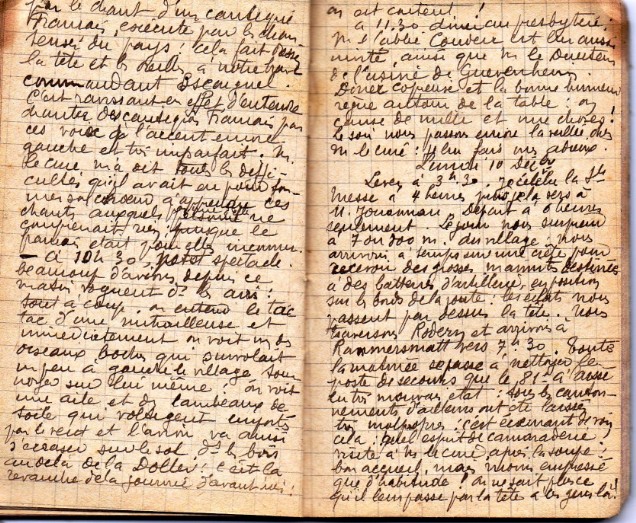 par le chant d'un cantique
français, exécuté par les chan
teuses du pays ! cela fait passer
la tête et la veille à notre
commandant Escargueil.
C'est ravissant en effet d'entendre
chanter des cantiques français par
ces voix de l'accent encore
gauche et très imparfait. M.
le curé m'a dit tous les diffi-
cultés qu'il avait eu pour for-
mer son choeur d'apprendre ces
chants auxquels personne ne
comprenait rien : puisque le
français était pour elles inconnu.
- A 10h30, petit spectacle.
beaucoup d'avions depuis ce
matin voguent ds les airs :
tout à coup, on entend le tac
tac d'une mitrailleuse et
immédiatement on voit un des
oiseaux boches qui survolait
un peu à gauche le village, tour
noyer sur lui même : on voit
une aile et des lambeaux de
toile qui voltigent emportés
par le vent et l'avion va aussi
s'écraser sur le sol ds le bois
au delà de la Doller : c'est la
revanche de la journée d'avant-hier !
on est content !
A 11.30 dîner au presbytère :
M. l'abbé est lui aussi
invité, ainsi que M. le Directeur
de l'usine de Guevenheim.
Dîner copieux et la bonne humeur
règne autour de la table : on
cause de mille et une choses.
Le soir nous passons encore la veillée chez
M. le curé : y lui fais mes adieux.
Lundi 10 Décbr
Lever à 3h30. Je célèbre la Ste
Messe à 4 heures, puis je la sers à
M. Jouannau. Départ à 6 heures
seulement. Le jour nous surprend
à 7 ou 800 m. du village : nous
arrivons à temps sur une crête pour
recevoir des grosses marmites destinées
à des batteries d'artillerie, en position
sur le bord de la route : les éclats nous
passent par dessus la tête. Nous
traversons Rodern et arrivons à
Rammersmatt vers 7h30. Toute
la matinée se passe à nettoyer le
poste de secours que le 81e a laissé
en très mauvais état : tous les canton-
nements d'ailleurs ont été laissés
très malpropres : c'est écoeurant de voir
cela : quel esprit de camaraderie.
visite à M. le curé après la soupe :
bon accueil, mais moins empressé
que d'habitude ! On ne sait plus ce
qu'il leur passe par la tête à ces gens là !